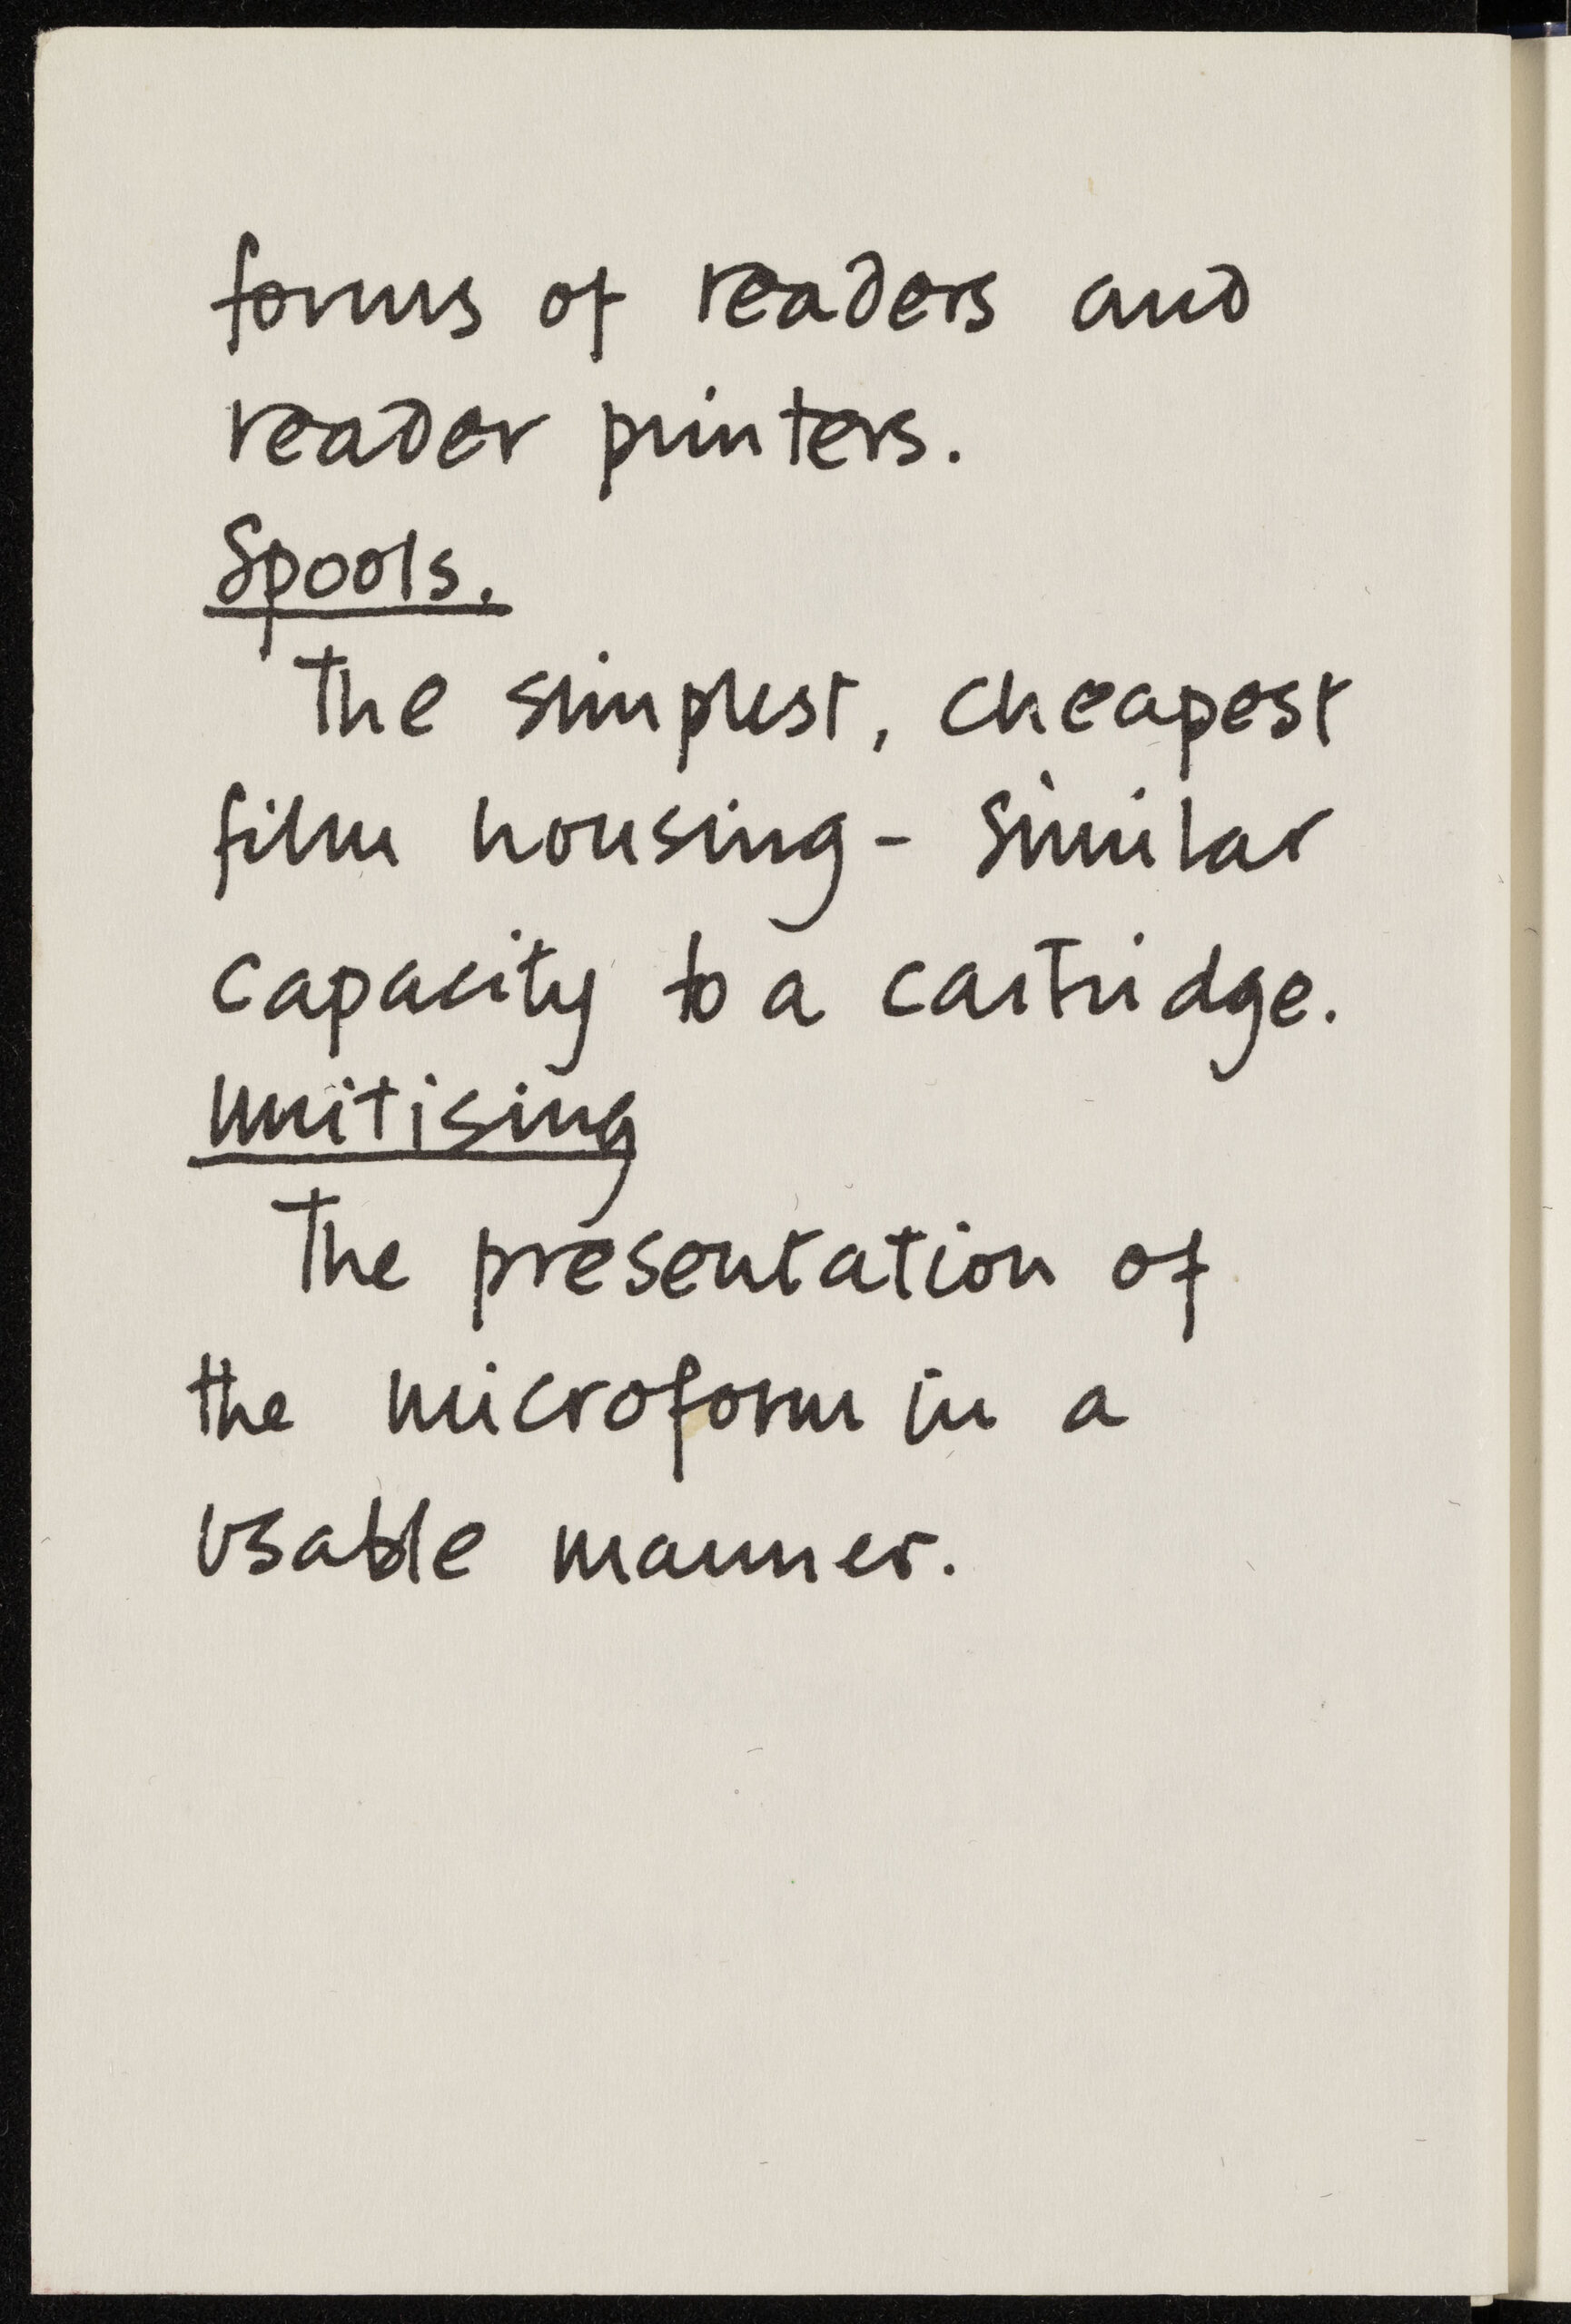 forms of readers and
reader printers.
Spools.
The simplest, cheapest
film housing - similar
capacity to a cartridge.
Unitising
The presentation of
the microform in a
usable manner.